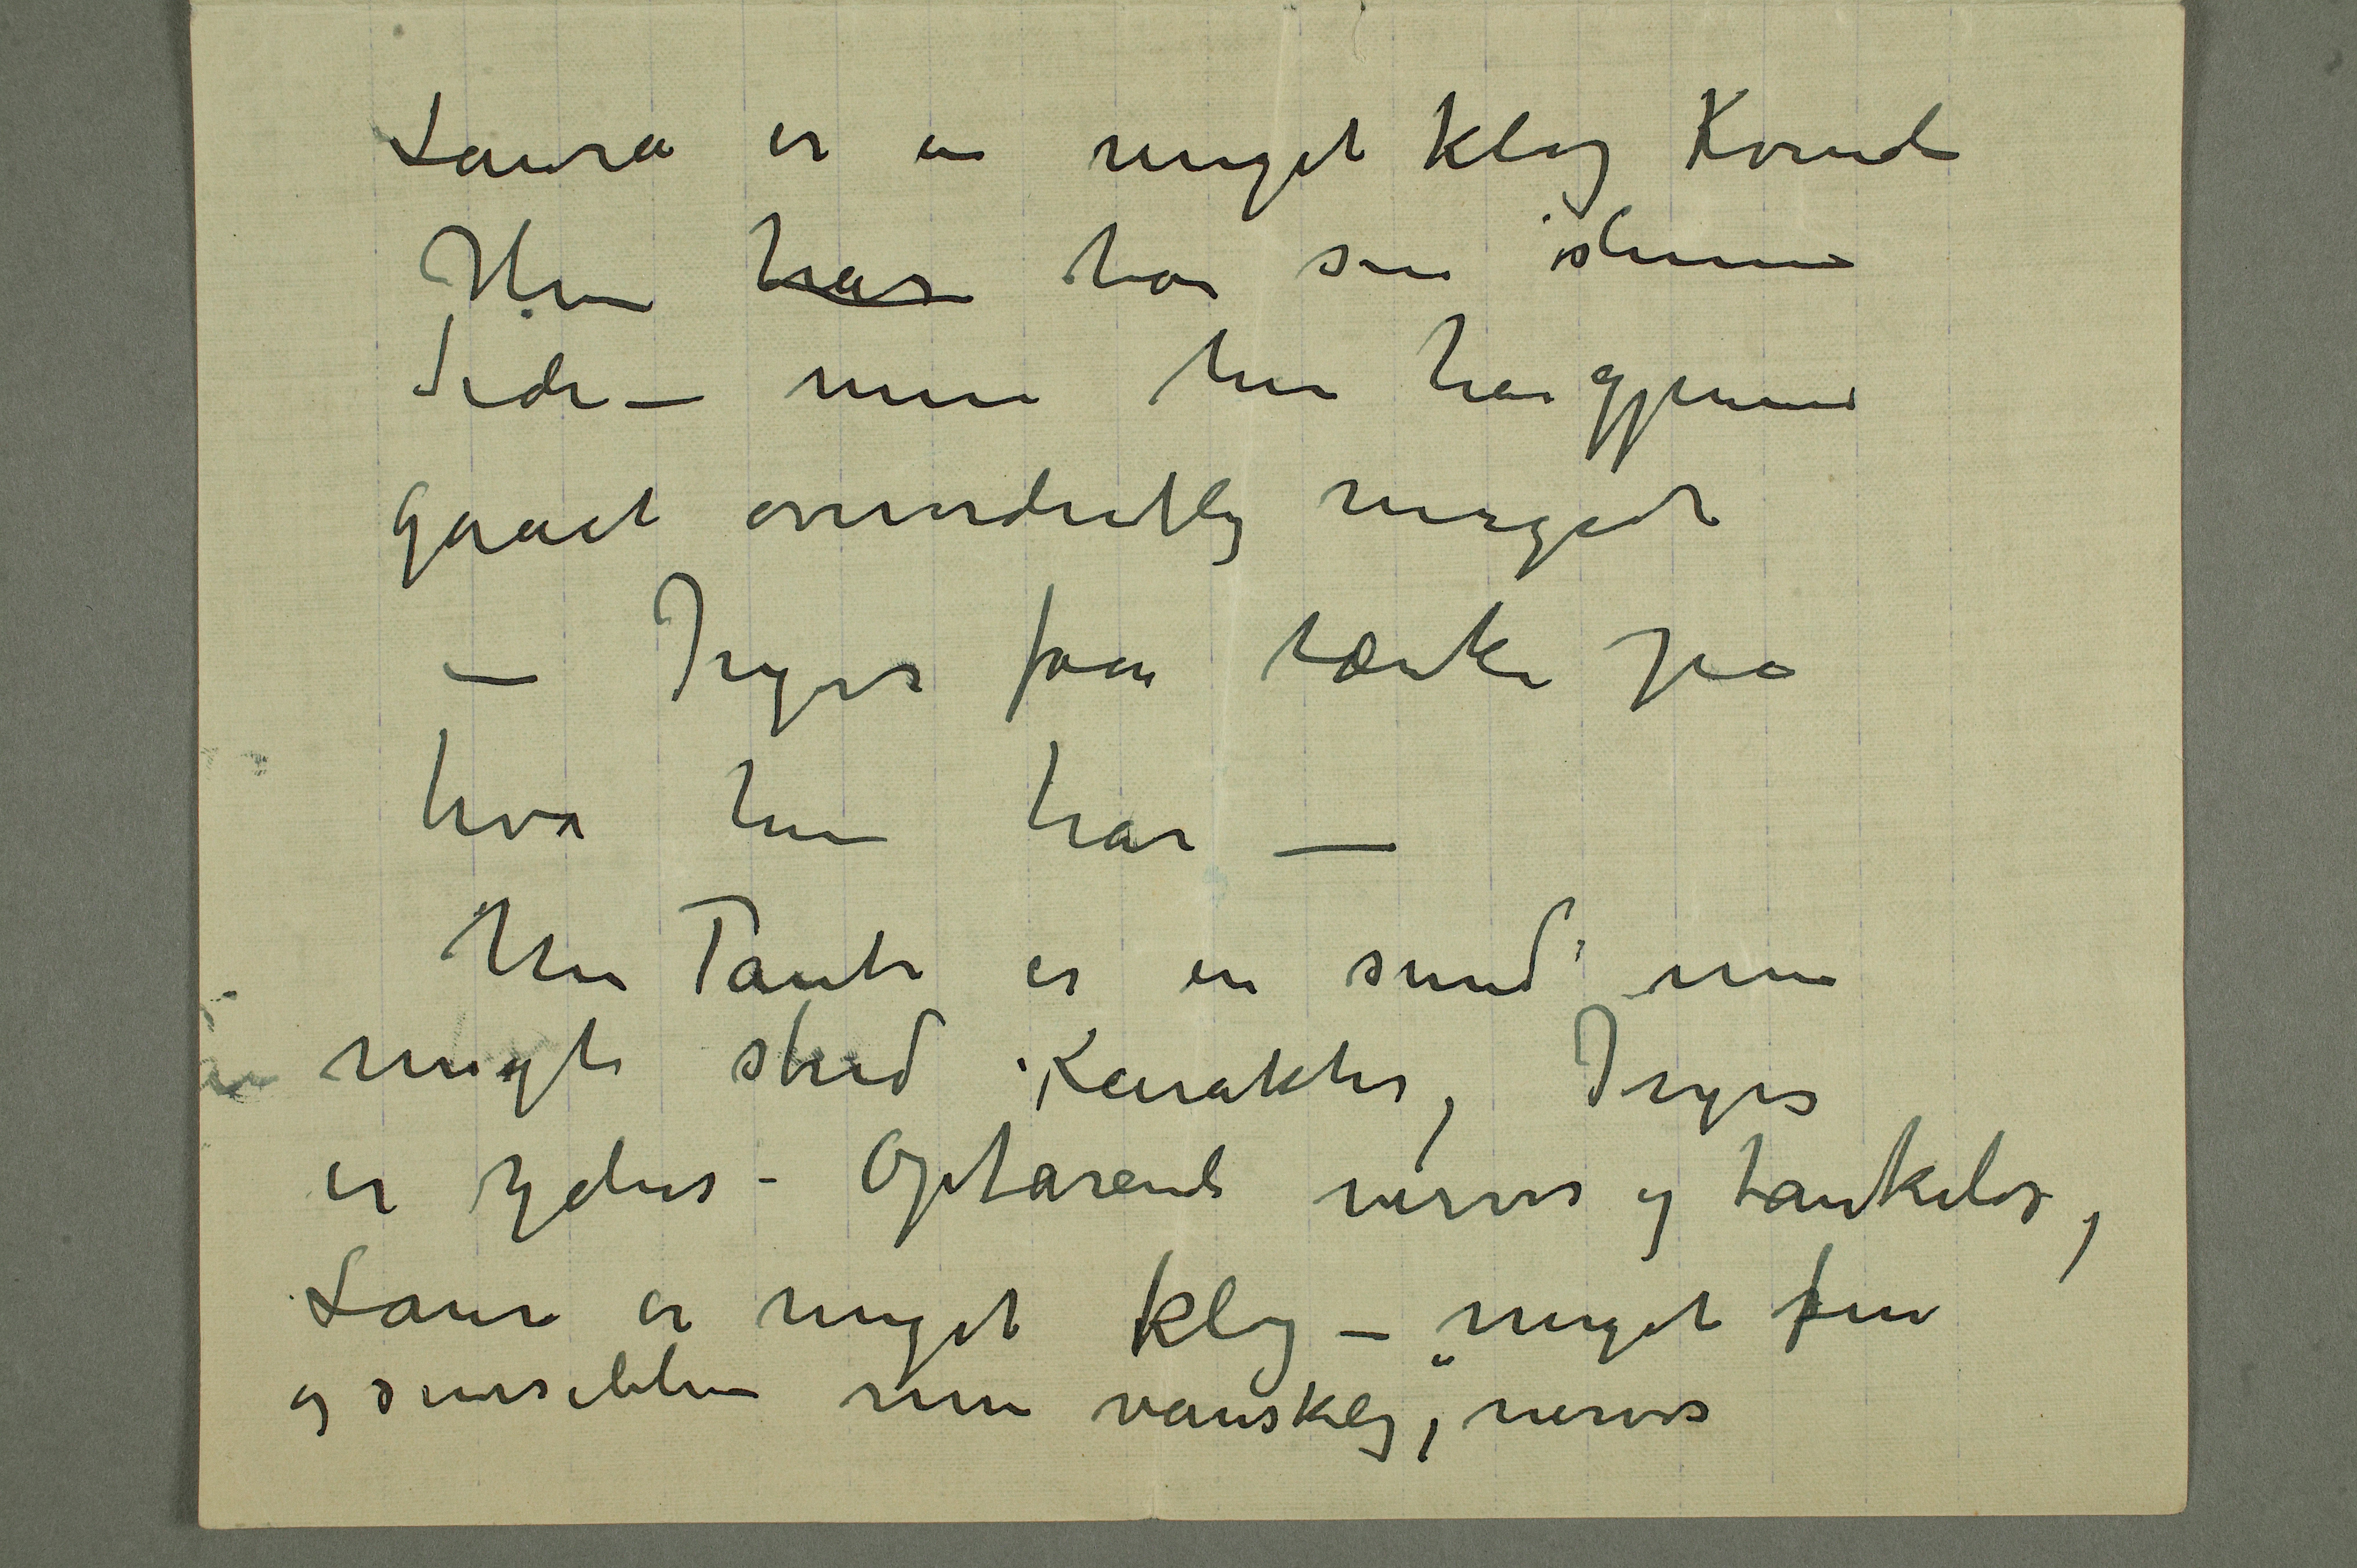 Laura er en meget klog Kvinde
Hun har har sine slemme
Sider – men hun har gjennem
gaaet overordentlig meget
– Inger faar tænke på
hva hun har –
Nu Tante er en sund men
meget stærd Karakter, Inger
er ydmys - Opfarende nervøs og tankeløs,
Laura er meget klog – meget fin
og sensibbel men vanskelig, nervøs